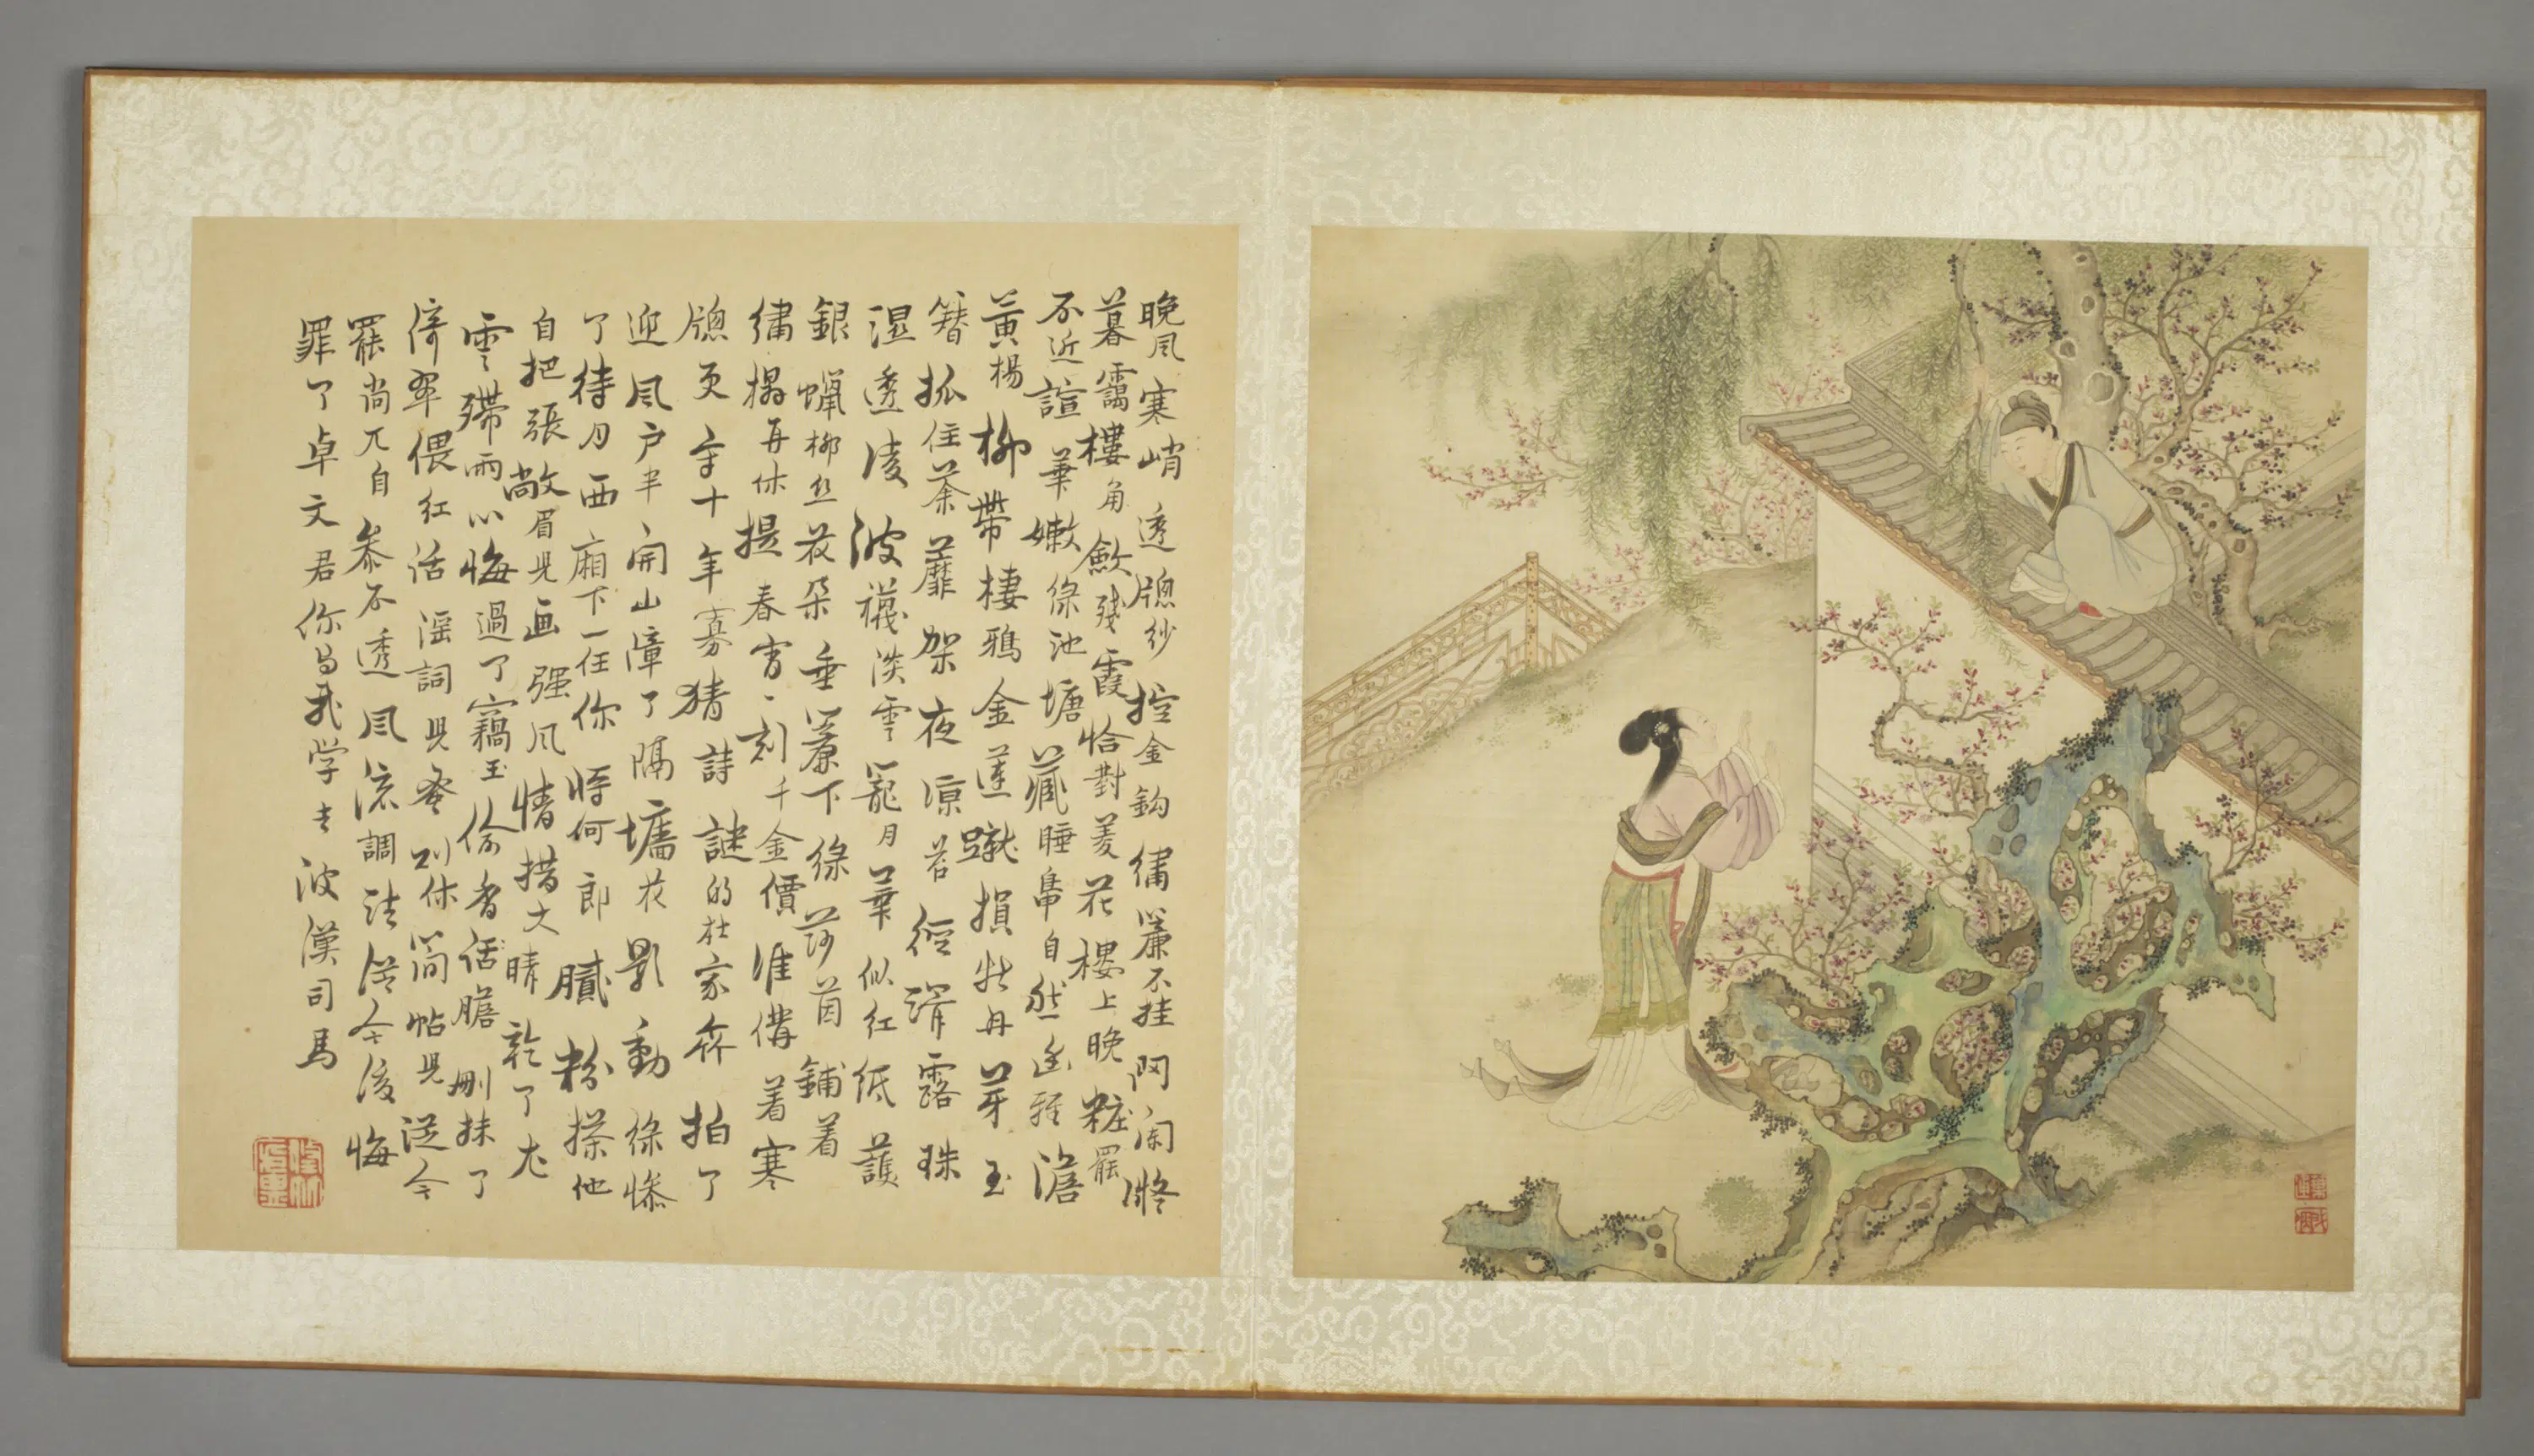 晚風寒峭透牕紗控金鈎繡簾不挂門闌凝
暮靄樓角歛殘霞恰對菱花樓上晚粧罷
不近諠華嫩綠池塘藏睡鳧自然幽雅澹
黃楊柳帶棲鴉金蓮蹴損牡丹芽玉
簪抓住荼蘼架夜涼苔徑滑露珠
湿透凌波襪淡雲籠月華似紅紙護
銀蠟柳丝花朵垂簾下綠莎茵鋪着
繡榻再休提春宵一刻千金價准備着寒
牕更守十年寡猜詩謎的杜家㚞拍了
迎風户半開山障了隔墻花影動綠慘
了待月西廂下一任你將何郎膩粉搽他
自把張敞眉兒画强風情措大晴乾了尤
雲殢雨心悔過了竊玉偷香膽刪抹了
倚翠偎紅話滛詞兒蚤則休簡帖兒從今
罷尚兀自叅不透風流調法從今後悔
罪了卓文君你与我学去波漢司馬